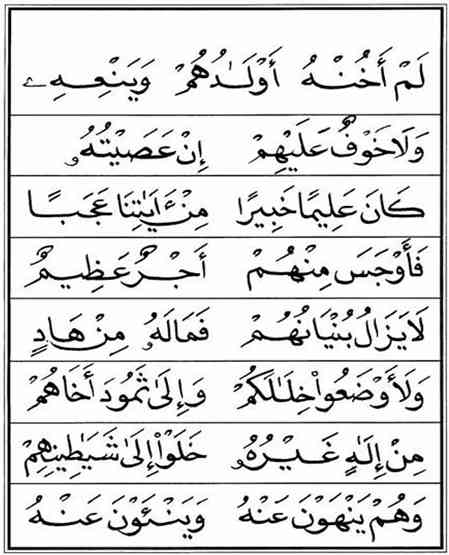 لَمْ أَخُنْهُ أَوْلَٰدُهُمْ وَيَنْعِهِۦ
وَلَا خَوْفٌ عَلَيْهِمْ إِنْ عَصَيْتُهُۥ
كَانَ عَلِيمًا خَبِيرًا مِنْ ءَايَٰتِنَا عَجَبًا
فَأَوْجَسَ مِنْهُمْ أَجْرٌ عَظِيمٌ
لَا يَزَالُ بُنْيَانُهُمْ فَمَا لَهُۥ مِنْ هَادٍ
وَلَأَوْضَعُوا۟ خِلَٰلَكُمْ وَإِلَىٰ ثَمُودَ أَخَاهُمْ
مِنْ إِلَٰهٍ غَيْرُهُۥ خَلَوْا۟ إِلَىٰ شَيَٰطِينِهِمْ
وَهُمْ يَنْهَوْنَ عَنْهُ وَيَنْـَٔوْنَ عَنْهُ